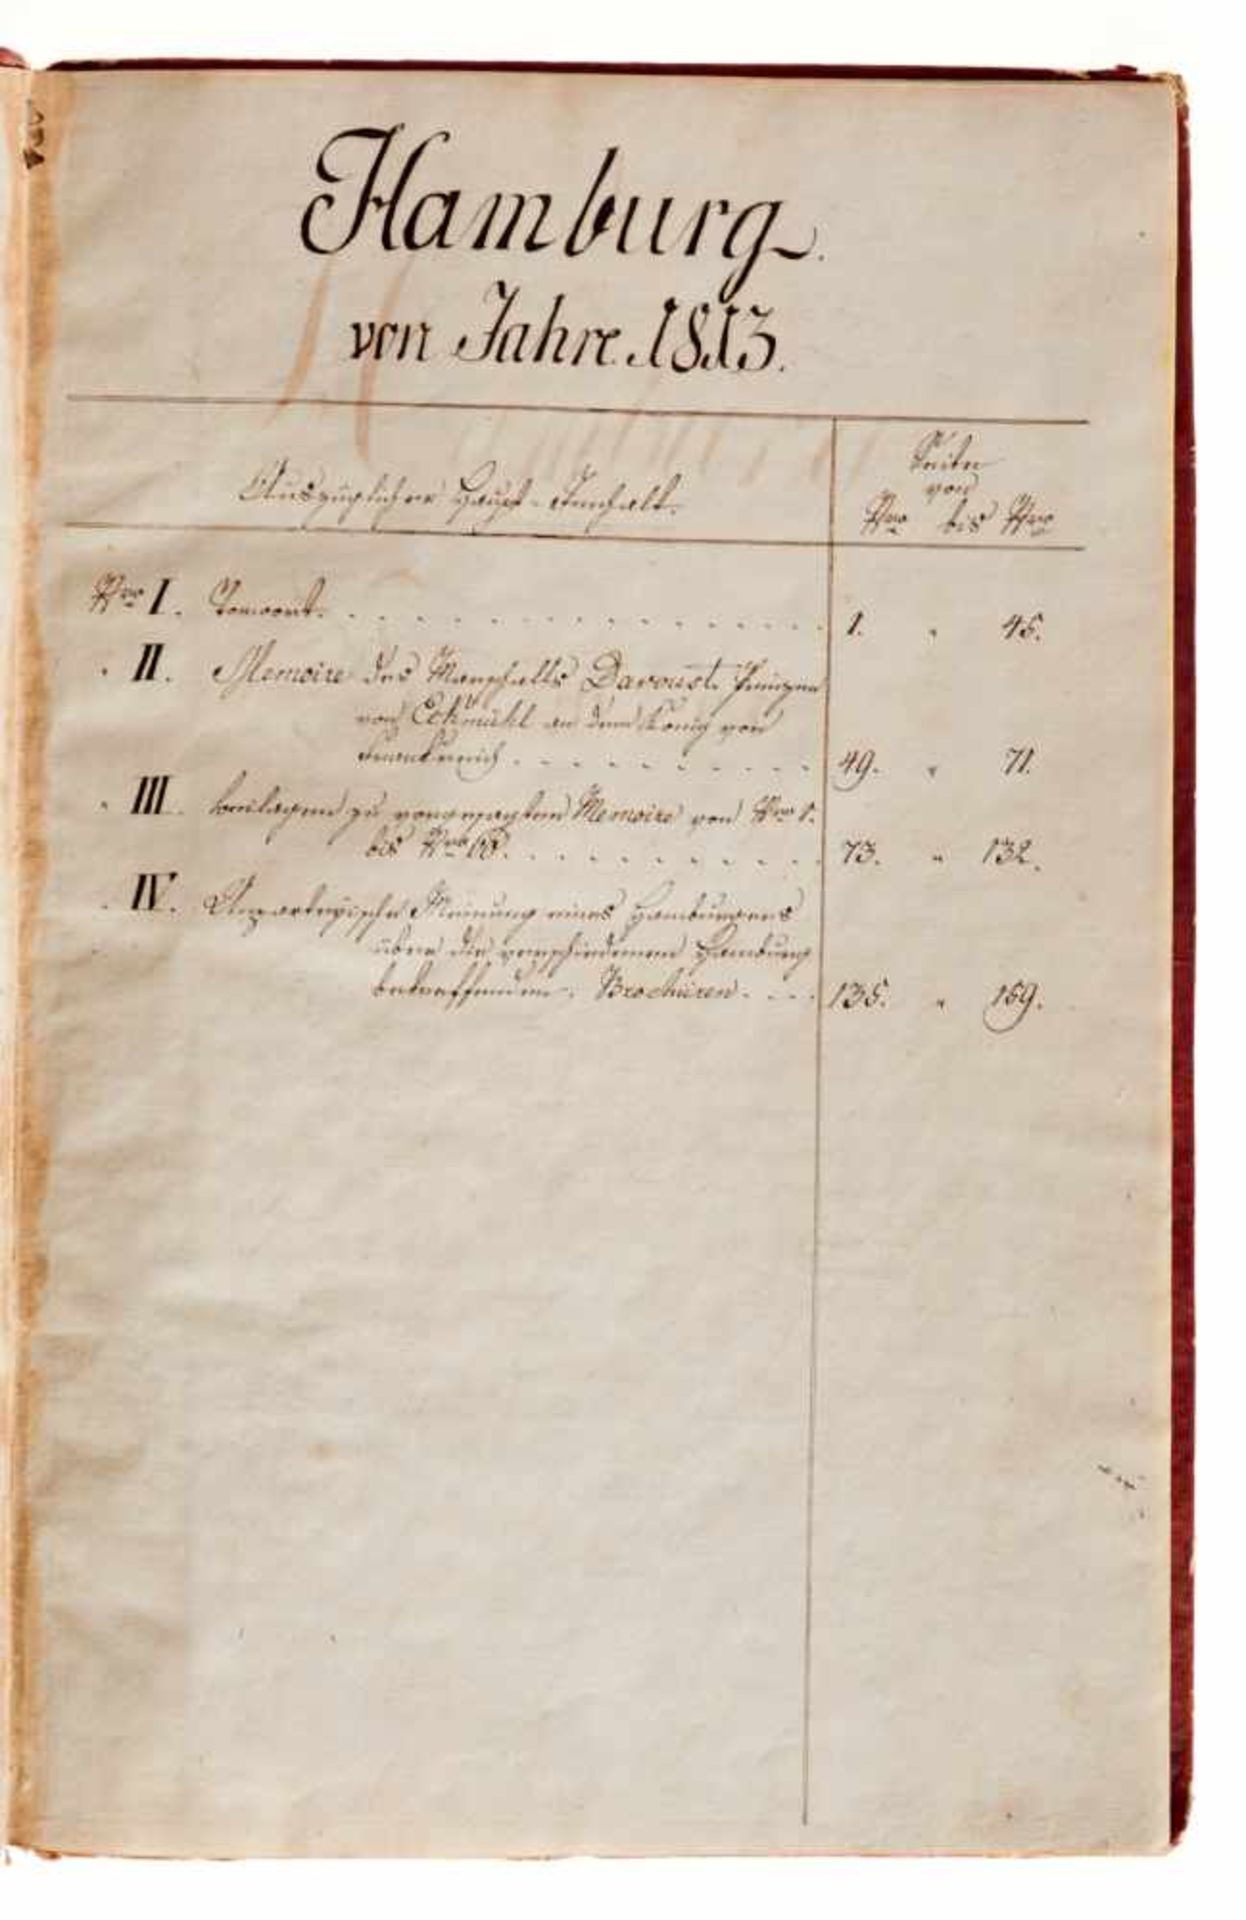 Hamburg.
von Jahre 1813.
Auszüglicher Haupt-Innhalt.
Seiten
von
Nro bis Nro
Nro I. Vorwort. 1. " 45.
" II. Memoire des Marschalls Davoust. Prinzen
von Eckmühl an den König von
Frankreich. 49. " 71.
" III. Beilagen zu vorgesagten Memoire von Nro 1.
bis Nro 73. " 132.
" IV. Unparteyische Meinung eines Hamburgers
über die verschiedenen Hamburg
betreffenden Brochüren. 135. " 159.